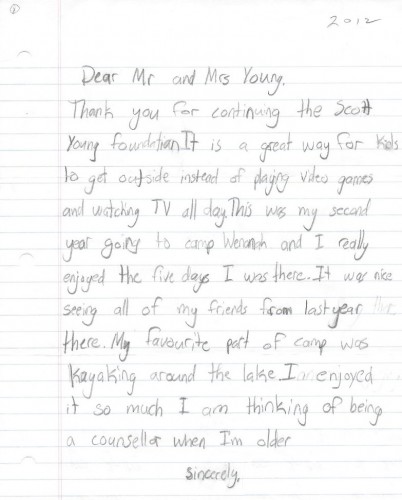 2012
Dear Mr and Mrs Young,
Thank you for continuing the Scott
Young foundation. It is a great way for kids
to get outside instead of playing video games
and watching TV all day. This was my second
year going to camp Wenonah and I really
enjoyed the five days I was there. It was nice
seeing all of my friends from last year
there. My favourite part of camp was
Kayaking around the lake. I enjoyed
it so much I am thinking of being
a counsellor when I'm older
Sincerely,